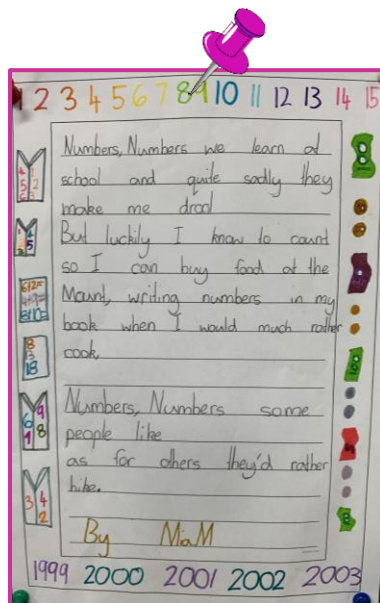 1 2 3 4 5 6 7 8 9 10 11 12 13 14 15
Numbers, Numbers we learn at
school and quite sadly they
make me drool
But luckily I know to count
so I can buy food at the
Mount, writing numbers in my
book when I would much rather
cook,
Numbers, Numbers some
people like
as for others they'd rather
hike.
By MiaM
1999 2000 2001 2002 2003